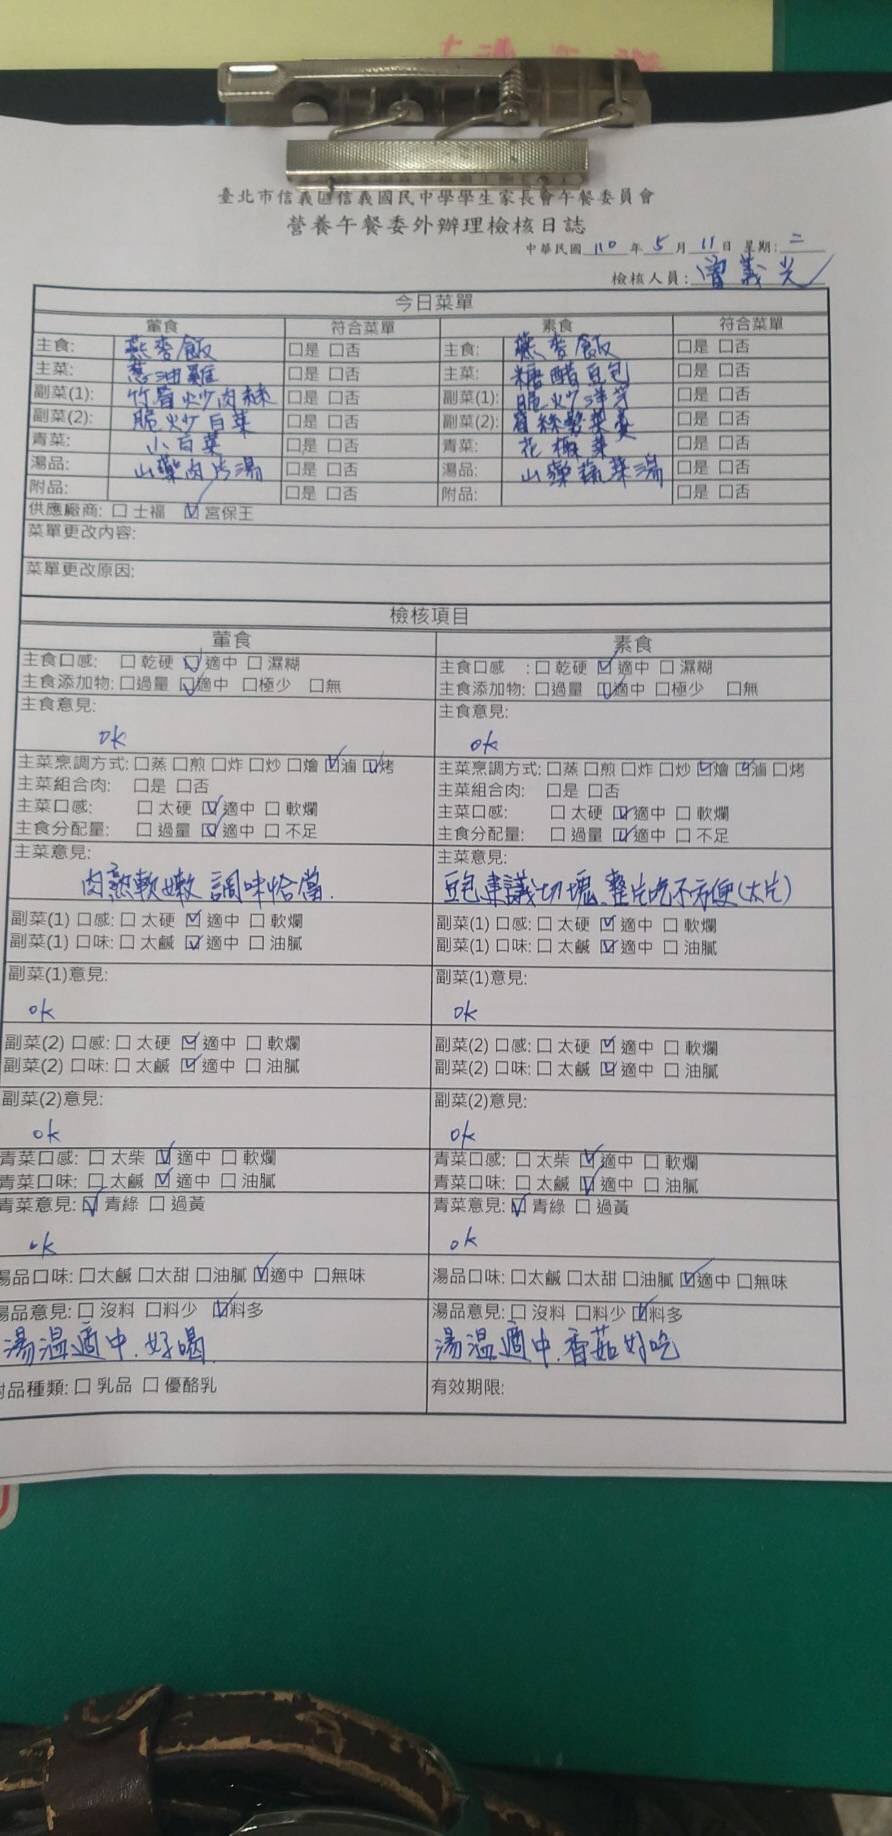 臺北市信義區信義國民中學學生家長會午餐委員會
營養午餐委外辦理檢核日誌
中華民國 110 年 5 月 11 日 星期: 二
檢核人員: 曾義光
今日菜單
葷食 符合菜單 素食 符合菜單
主食: 燕麥飯 口是 口否 主食: 燕麥飯 口是 口否
主菜: 蔥油雞 口是 口否 主菜: 糖醋豆包 口是 口否
副菜(1): 竹筍炒肉絲 口是 口否 副菜(1): 脆炒洋芋 口是 口否
副菜(2): 脆炒白菜 口是 口否 副菜(2): 絲 羹 口是 口否
青菜: 小白菜 口是 口否 青菜: 花椰菜 口是 口否
湯品: 山藥肉片湯 口是 口否 湯品: 山藥蔬菜湯 口是 口否
附品: 口是 口否 附品: 口是 口否
供應廠商: 口 士福 ☑ 宮保王
菜單更改內容:
菜單更改原因:
檢核項目
葷食 素食
主食口感: 口 乾硬 ☑ 適中 口 濕糊 主食口感 : 口 乾硬 ☑ 適中 口 濕糊
主食添加物: 口過量 ☑適中 口極少 口無 主食添加物: 口過量 ☑適中 口極少 口無
主食意見: 主食意見:
ok ok
主菜烹調方式: 口蒸 口煎 口炸 口炒 口燴 ☑滷 ☑烤 主菜烹調方式: 口蒸 口煎 口炸 口炒 ☑燴 ☑滷 口烤
主菜組合肉: 口是 口否 主菜組合肉: 口是 口否
主菜口感: 口 太硬 ☑ 適中 口 軟爛 主菜口感: 口 太硬 ☑適中 口 軟爛
主食分配量: 口 過量 ☑ 適中 口 不足 主食分配量: 口 過量 ☑適中 口 不足
主菜意見: 主菜意見:
肉熟軟嫩 調味恰當. 豆包建議切塊、整片吃不方便(太片)
副菜(1) 口感: 口 太硬 ☑ 適中 口 軟爛 副菜(1) 口感: 口 太硬 ☑ 適中 口 軟爛
副菜(1) 口味: 口 太鹹 ☑ 適中 口 油膩 副菜(1) 口味: 口 太鹹 ☑ 適中 口 油膩
副菜(1)意見: 副菜(1)意見:
ok ok
副菜(2) 口感: 口 太硬 ☑ 適中 口 軟爛 副菜(2) 口感: 口 太硬 ☑ 適中 口 軟爛
副菜(2) 口味: 口 太鹹 ☑ 適中 口 油膩 副菜(2) 口味: 口 太鹹 ☑ 適中 口 油膩
副菜(2)意見: 副菜(2)意見:
ok ok
青菜口感: 口 太柴 ☑ 適中 口 軟爛 青菜口感: 口 太柴 ☑適中 口 軟爛
青菜口味: 口 太鹹 ☑ 適中 口 油膩 青菜口味: 口 太鹹 ☑ 適中 口 油膩
青菜意見: ☑ 青綠 口 過黃 青菜意見: ☑青綠 口 過黃
ok ok
湯品口味: 口太鹹 口太甜 口油膩 ☑適中 口無味 湯品口味: 口太鹹 口太甜 口油膩 ☑適中 口無味
湯品意見: 口 沒料 口料少 ☑料多 湯品意見: 口 沒料 口料少 ☑料多
湯溫適中.好喝. 湯溫適中.香菇好吃
附品種類: 口 乳品 口 優酪乳 有效期限: